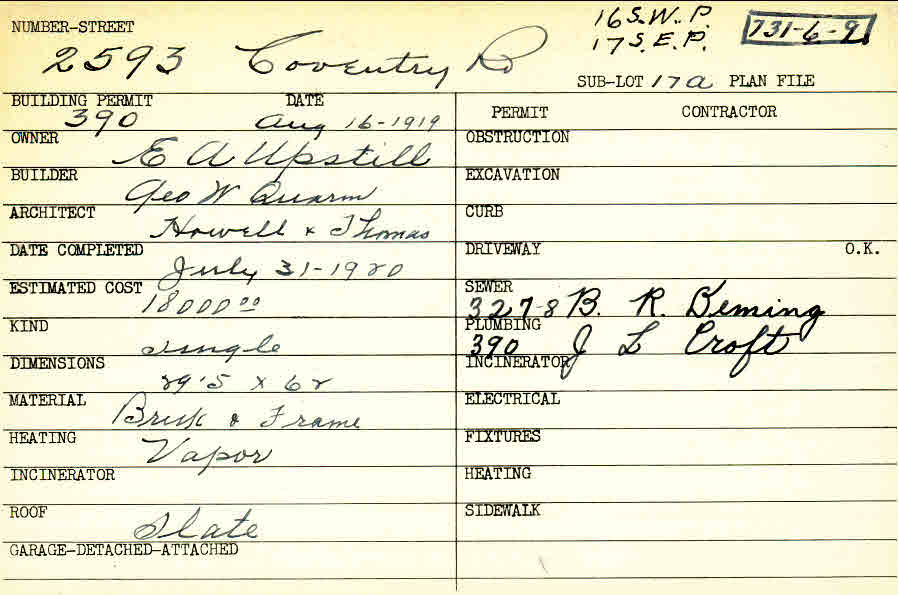 NUMBER-STREET
16 S.W. P.
17 S.E. P.
731-6-9
2593 Coventry Rd
SUB-LOT 17a PLAN FILE
BUILDING PERMIT DATE
390 Aug 16-1919
OWNER
E A Upstill
BUILDER
Geo W Quarm
ARCHITECT
Howell & Thomas
DATE COMPLETED
July 31-1920
ESTIMATED COST
18000 00
KIND
single
DIMENSIONS
29'5 x 62
MATERIAL
Brick & Frame
HEATING
Vapor
INCINERATOR
ROOF
Slate
GARAGE-DETACHED-ATTACHED
PERMIT CONTRACTOR
OBSTRUCTION
EXCAVATION
CURB
DRIVEWAY O.K.
SEWER
3278 B. R. Deming
PLUMBING
390 J L Croft
INCINERATOR
ELECTRICAL
FIXTURES
HEATING
SIDEWALK